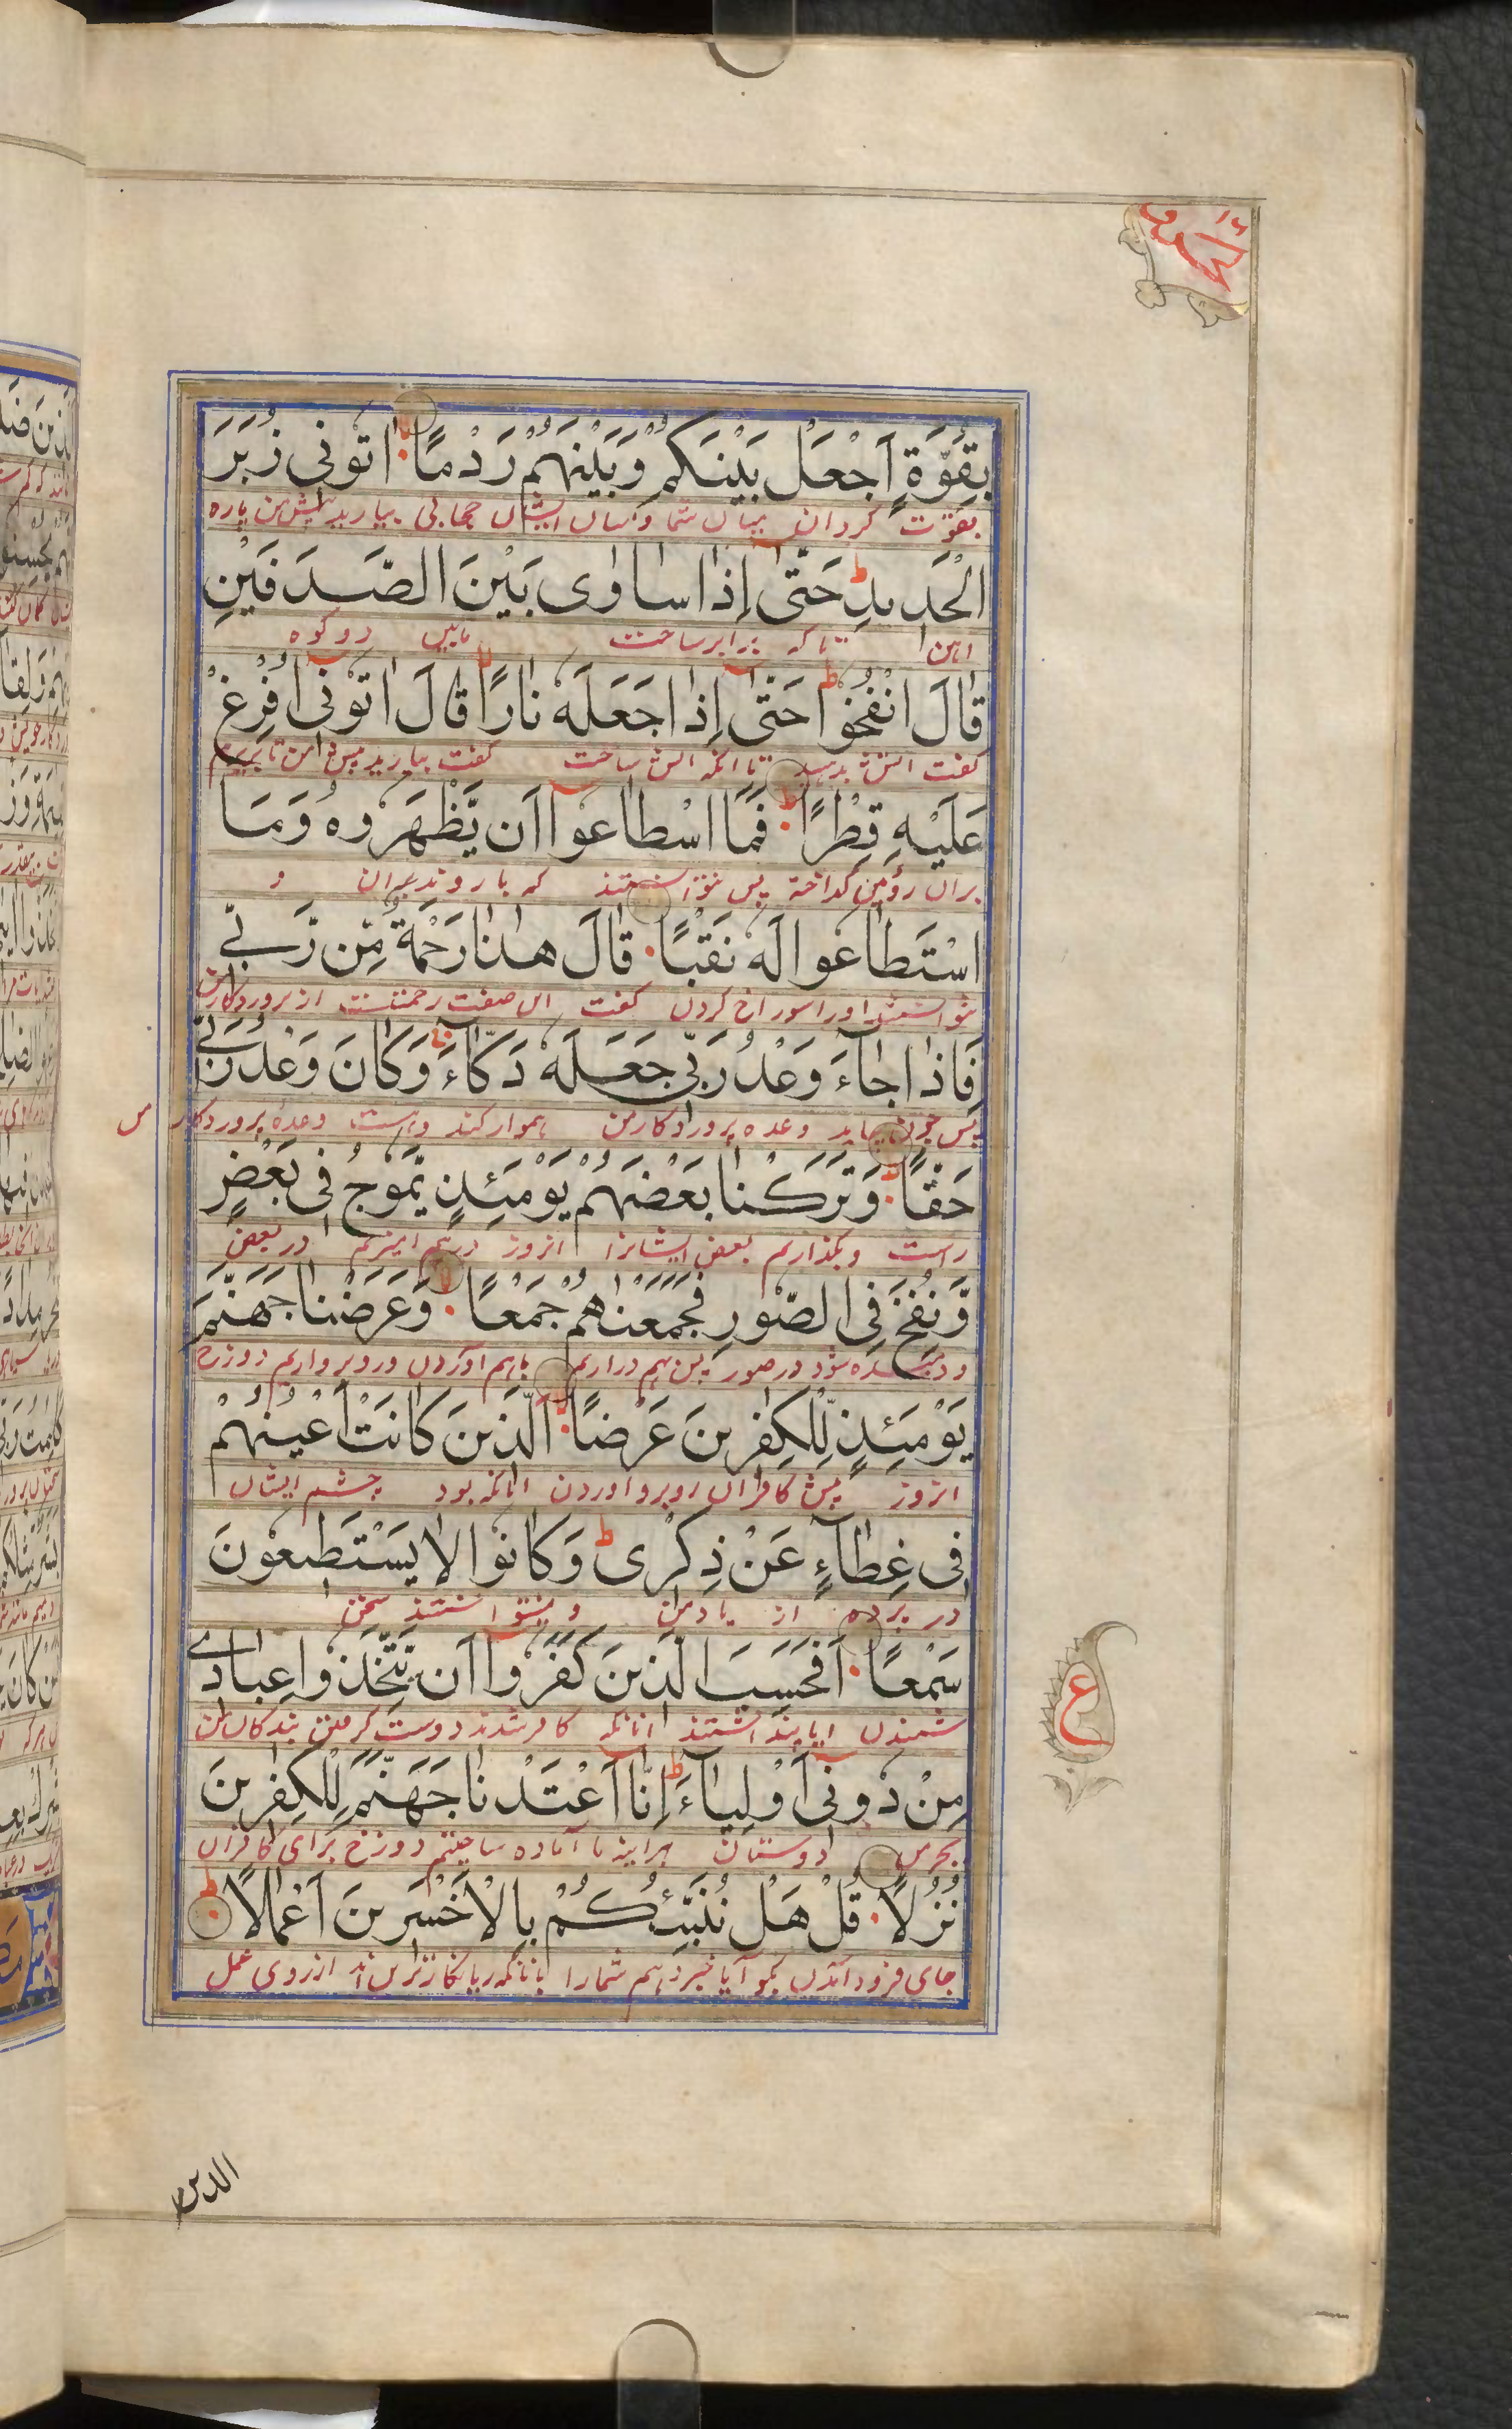 بِقُوَّةٍ اَجْعَلْ بَيْنَكُمْ وَبَيْنَهُمْ رَدْمًا اٰتُوْنِی زُبَرَ
بقوت کردان میان شما و میان ایشان حجابی بیارید پیش من پاره
الْحَدِیدِ ط حَتّٰٓی اِذَا سَاوٰی بَيْنَ الصَّدَفَيْنِ
اهن تا که برابر ساخت مابین دو کوه
قَالَ انْفُخُوْا ط حَتّٰٓی اِذَا جَعَلَهٗ نَارًا قَالَ اٰتُوْنِیٓ اُفْرِغْ
کفت اتش بدمید تا انکه اتش ساخت کفت بیارید پیش من تا بریزم
عَلَيْهِ قِطْرًا ط فَمَا اسْطَاعُوْٓا اَن يَّظْهَرُوهُ وَمَا
بران روئین کداخته پس نتوانستند که بار وند بران و
اسْتَطَاعُوا لَهٗ نَقْبًا قَالَ هٰذَا رَحْمَةٌ مِّن رَّبِّی
نتوانستند اورا سوراخ کردن کفت این صفت رحمتست از پروردکار من
فَاِذَا جَآءَ وَعْدُ رَبِّی جَعَلَهٗ دَكَّآءَ وَكَانَ وَعْدُ رَبِّی
پس چون بیاید وعده پروردکار من هموار کند و هست وعدۀ پروردکار من
حَقًّا وَتَرَكْنَا بَعْضَهُمْ يَوْمَئِذٍ يَّمُوْجُ فِی بَعْضٍ
راست و بکذاریم بعض ایشانرا انروز درهم امیزیم در بعض
وَّنُفِخَ فِی الصُّوْرِ فَجَمَعْنٰهُمْ جَمْعًا وَّعَرَضْنَا جَهَنَّمَ
و دمیده شود در صور پس بهم دراریم باهم اوردن و روبرو اریم دوزخ
يَوْمَئِذٍ لِّلْكٰفِرِينَ عَرْضًا الَّذِينَ كَانَتْ اَعْيُنُهُمْ
انروز پیش کافران روبرو اوردن انانکه بود چشم ایشان
فِی غِطَآءٍ عَنْ ذِكْرِی ط وَكَانُوا لَا يَسْتَطِيعُونَ
در پرده از یاد من و نمیتوانستند سخن
سَمْعًا اَفَحَسِبَ الَّذِينَ كَفَرُوْٓا اَن يَّتَّخِذُوا عِبَادِی
شنیدن ایا پنداشتند انانکه کافر شدند دوست کرفتن بندکان من
مِنْ دُوْنِیٓ اَوْلِيَآءَ ط اِنَّآ اَعْتَدْنَا جَهَنَّمَ لِلْكٰفِرِينَ
بجز من دوستان هراینه ما آماده ساختیم دوزخ برای کافران
نُزُلًا قُلْ هَلْ نُنَبِّئُكُمْ بِالْاَخْسَرِينَ اَعْمَالًا ط
جای فرود آمدن بکو آیا خبر دهیم شمارا بانانکه زیانکارترین اند از روی عمل
ع
الذین